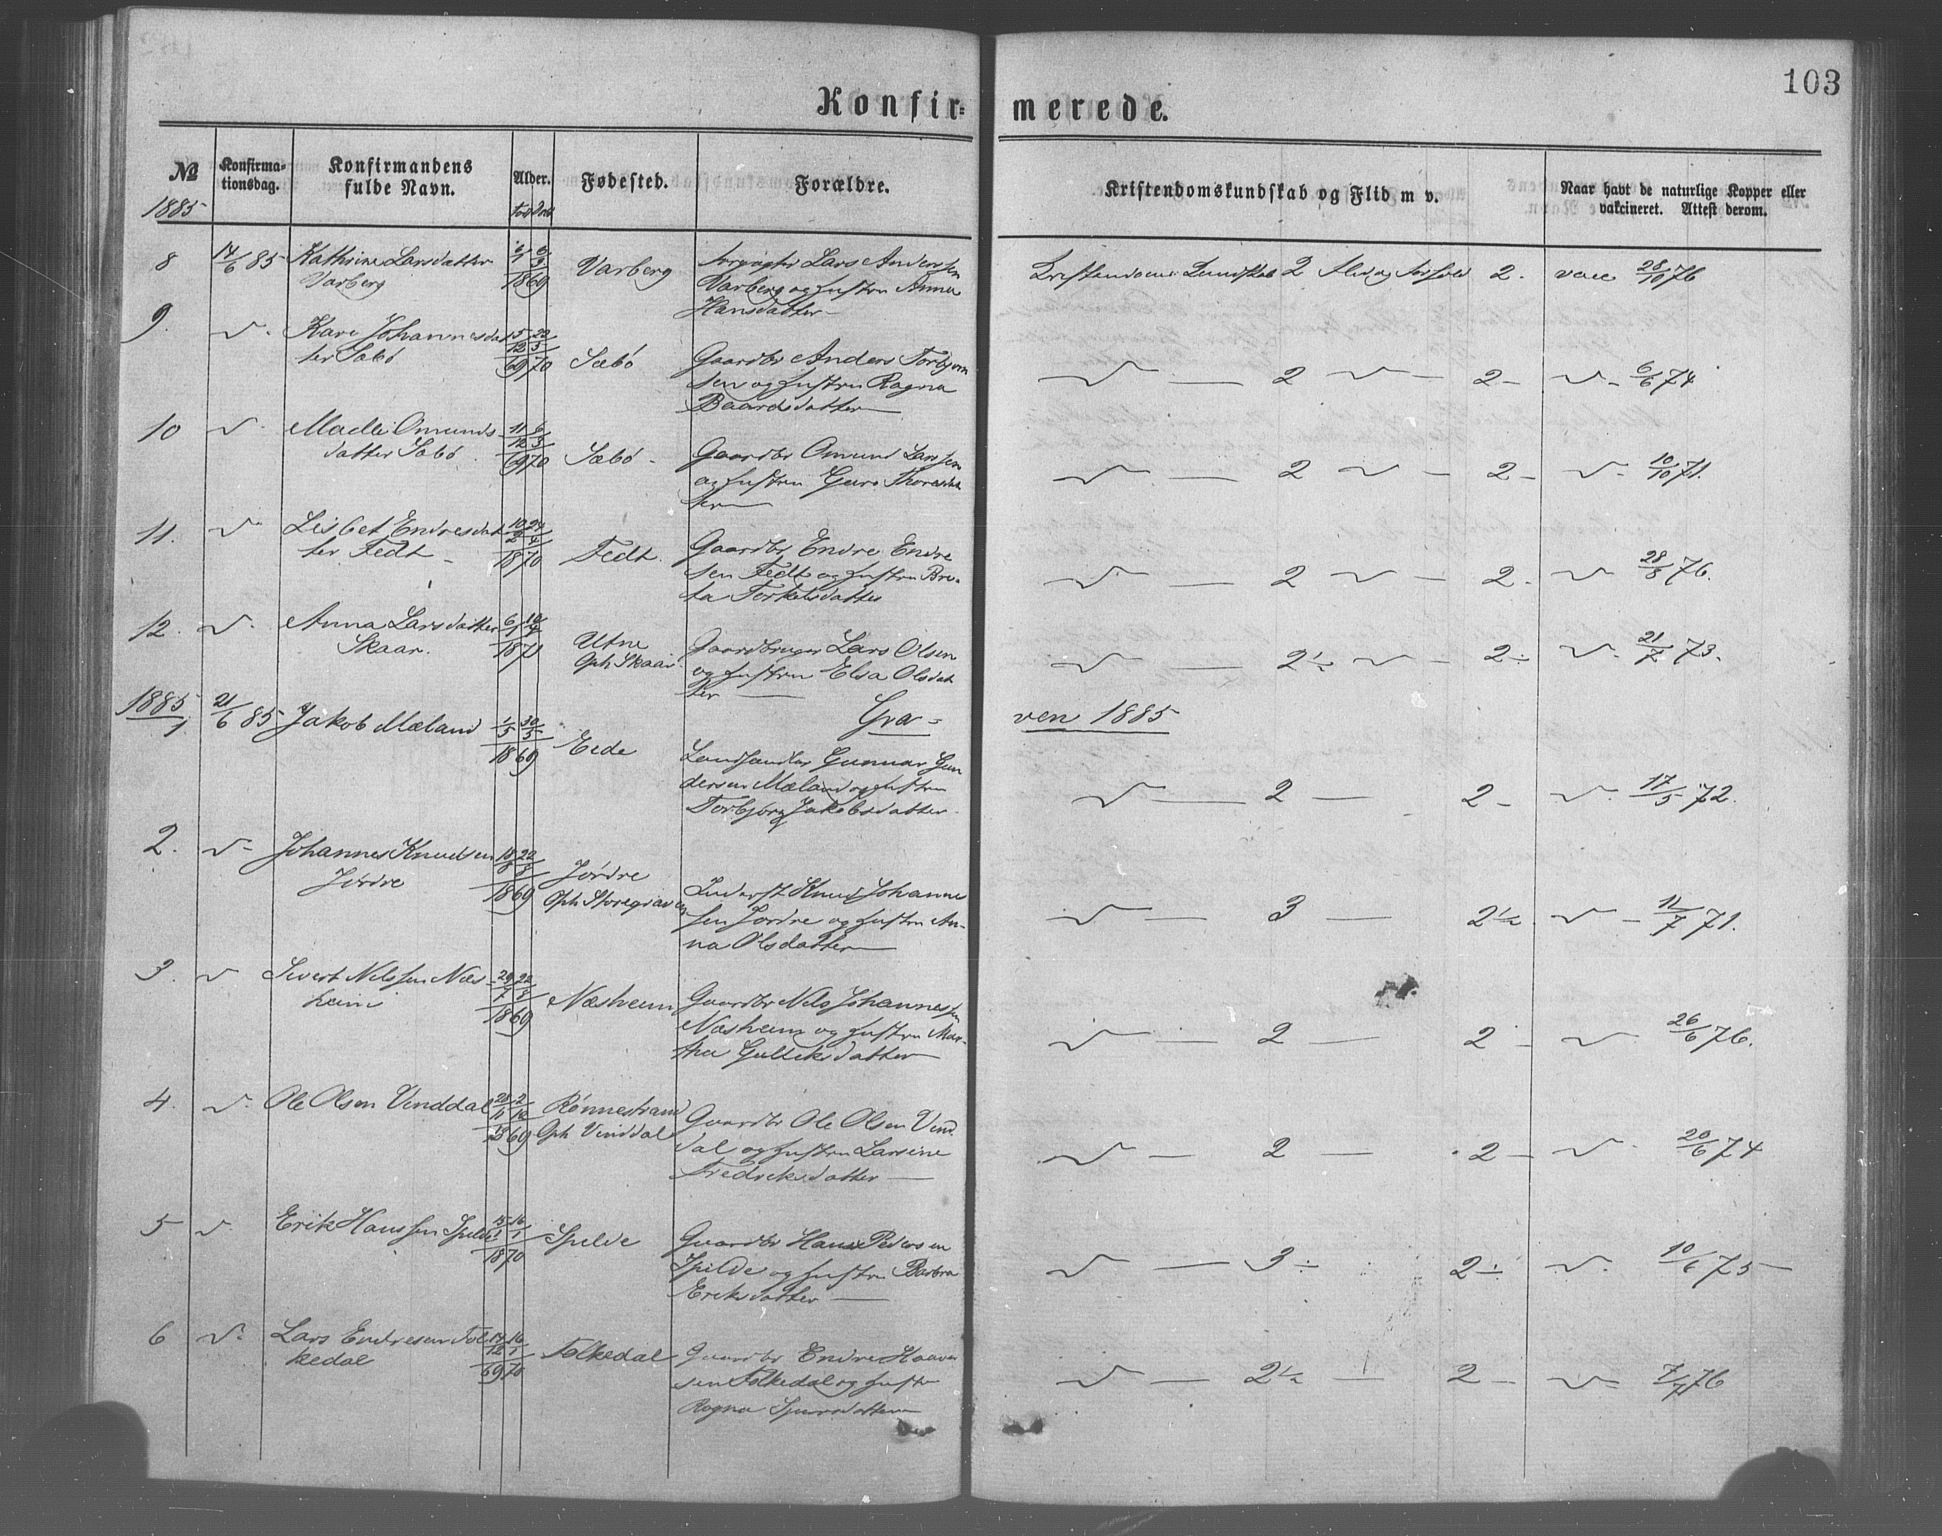 103
Konfir=
merede.
№
Konfirma=
tionsdag.
Konfirmandens
fulde Navn.
Alder.
Fødested.
Forældre.
Kristendomskundskab og Flid m v.
Naar havt de naturlige Kopper eller
vakcineret. Attest derom.
1885
Fød Døb
8 14/6 85 Kathrine Larsdatter 1869 Varberg Lars Andersen
Varberg
Varberg og Hustru Anna
Hansdatter
Kristendoms Kundskab 2 Flid og Forhold 2. vacc 28/10 76
9. Kari Johannesdat 15/12 69 22/3 70 Sæbø
ter Sæbø
Gaardbr Anders Torbjørn
sen og Hustru Ragna
Baardsdatter
2 2 6/6 74
10 Madli Omunds 11/12 69 6/3 70 Sæbø
datter Sæbø
Gaardbr Omund Larssen
og Hustru Guro Thoresdat
ter
2 2 10/10 71.
11. Lisbet Endresdat 10/2 24/4 1870 Fedt.
ter Fedt
Gaardbr Endre Endre
sen Fedt og Hustru Bri-
ta Torkelsdatter
2 2 28/8 76.
12. Anna Larsdatter 1871 Utne
Skaar. Oph Skaar
Gaardbruger Lars Olsen
og Hustru Elsa Olsdat
ter
2÷ 2÷ 21/7 73.
1885 Gra-
ven 1885
1 21/6 85 Jakob Mæland 1/5 30/5 1869 Eide
Landhandler Gunnar Gun
dersen Mæland og Hustru
Torbjørg Jakobsdatter
2 2 17/5 72.
2. Johannes Knudsen 1869 Jørdre
Jørdre Oph Storegraven
Inderst Knud Johanne
sen Jørdre og Hustru An-
na Olsdatter
3 2½ 11/7 71.
3. Sivert Nilssen Næs 1869 Næsheim
heim
Gaardbr Nils Johannessen
Næsheim og Hustru Mar-
tha Gulleiksdatter
2 2 26/6 76.
4. Ole Olsen Vinddal 1869 Rønnestrand
Oph Vinddal
Gaardbr Ole Olsen Vind
dal og Hustru Larsine
Fredriksdatter
2 2 20/6 74
5 Erik Hanssen Spilde 15/1 16/1 1870 Spilde
Gaardbr Hans Pedersen
Spilde og Hustru Barbra
Eriksdatter
3÷ 2÷ 10/6 75
6 Lars Endresen Fol 69 70 Folkedal
kedal
Gaardbr Endre Haavar
sen Folkedal og Hustr
Ragna Sjursdatter
2½ 2 7/7 76